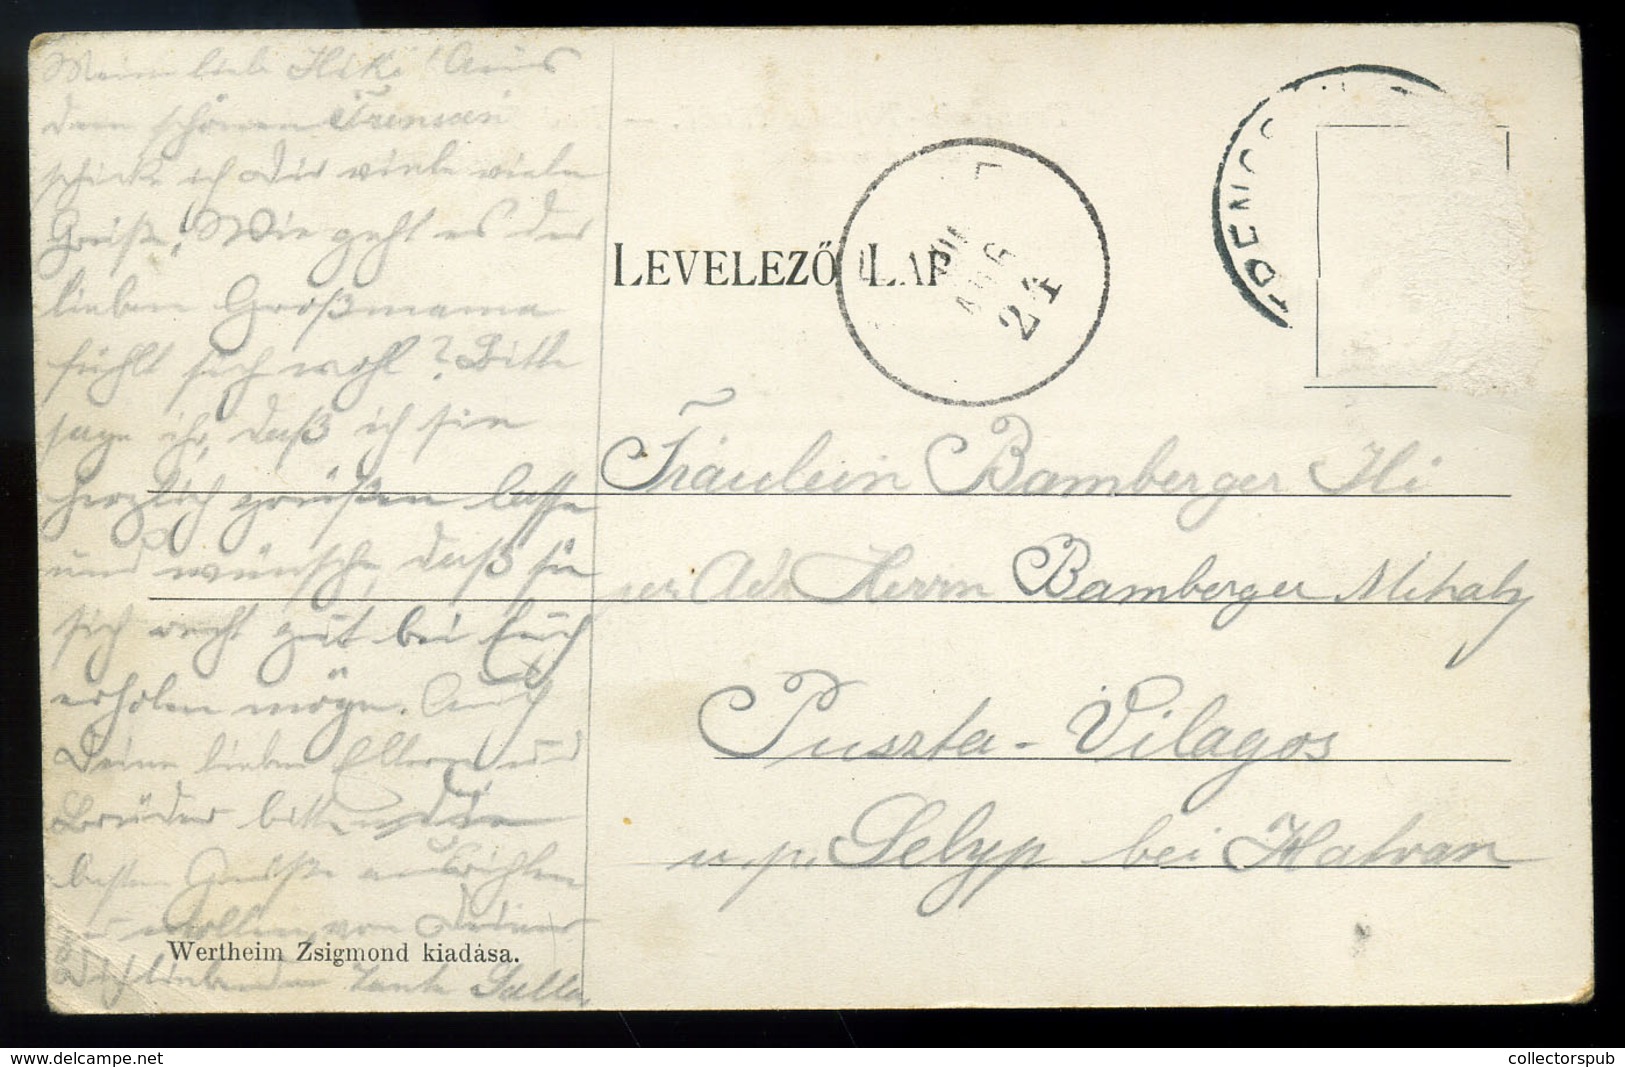 Meine liebe Ilike! Aus
dem schönen Trencsen
schicke ich Dir viele viele
Grüße! Wie geht es der
lieben Großmama
fühlt sich wohl? Bitte
sage ihr, daß ich sie
herzlich grüßen lasse
und wünsche, daß sie
sich recht gut bei Euch
erholen möge. Auch
Deine lieben Eltern und
Brüder bitte
besten Grüße ausrichten
zu wollen, von Deiner
Dich liebenden Tante
Wertheim Zsigmond kiadása.
LEVELEZŐ LAP
AUG
24
RENCS
Fräulein Bamberger Ili
per Adr Herrn Bamberger Mihaly
Puszta-Vilagos
u.p. Selyp bei Hatvan
collectorspub
http://www.delcampe.net